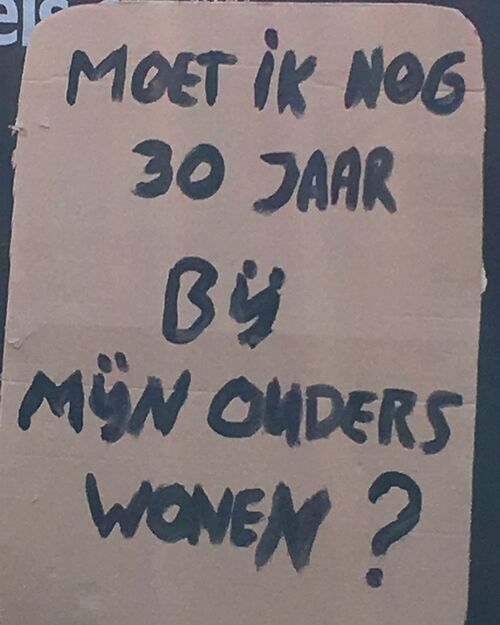 MOET iK NOG
30 JAAR
Bÿ
MÿN OUDERS
WONEN ?